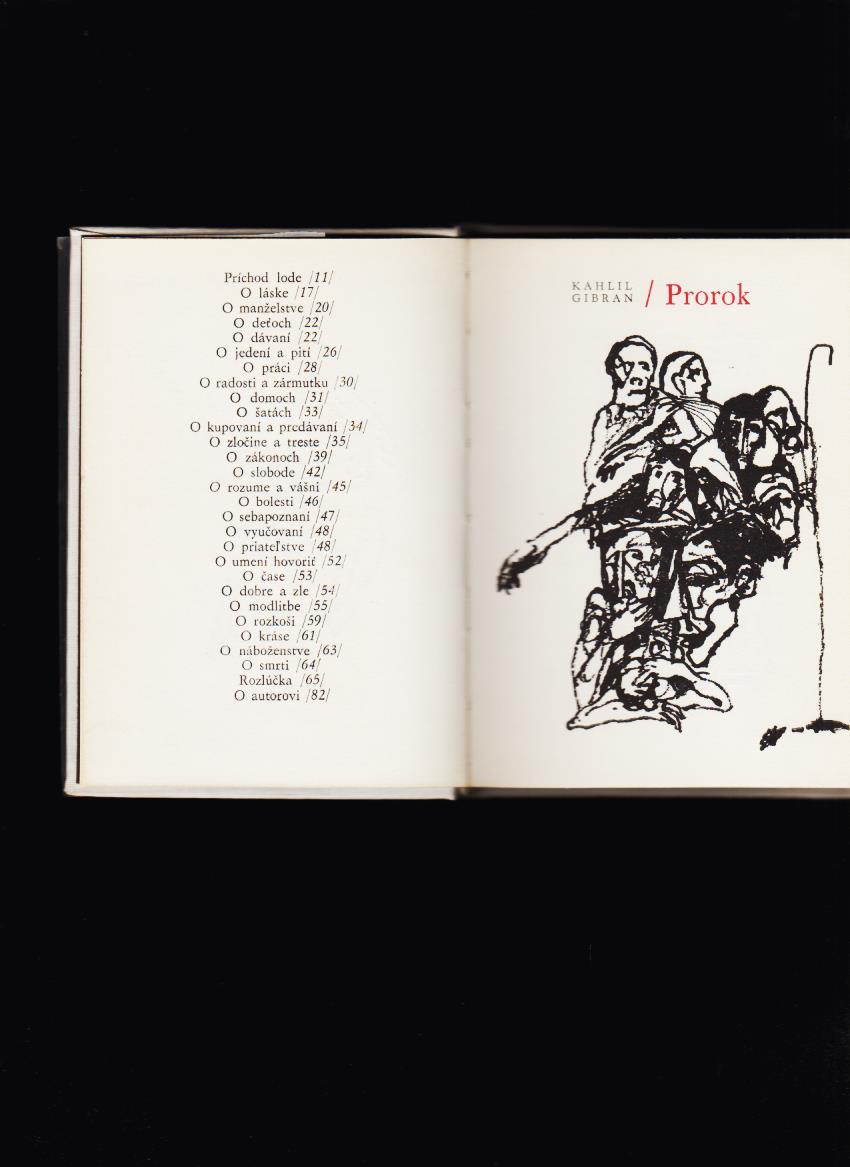 Príchod lode /11/
O láske /17/
O manželstve /20/
O deťoch /22/
O dávaní /22/
O jedení a pití /26/
O práci /28/
O radosti a zármutku /30/
O domoch /31/
O šatách /33/
O kupovaní a predávaní /34/
O zločine a treste /35/
O zákonoch /39/
O slobode /42/
O rozume a vášni /45/
O bolesti /46/
O sebapoznaní /47/
O vyučovaní /48/
O priateľstve /48/
O umení hovoriť /52/
O čase /53/
O dobre a zle /54/
O modlitbe /55/
O rozkoši /59/
O kráse /61/
O náboženstve /63/
O smrti /64/
Rozlúčka /65/
O autorovi /82/
KAHLIL
GIBRAN / Prorok